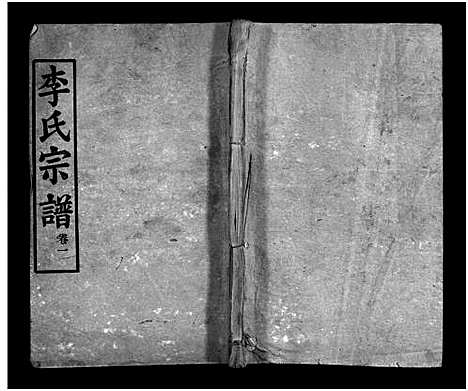 李氏宗譜 卷一